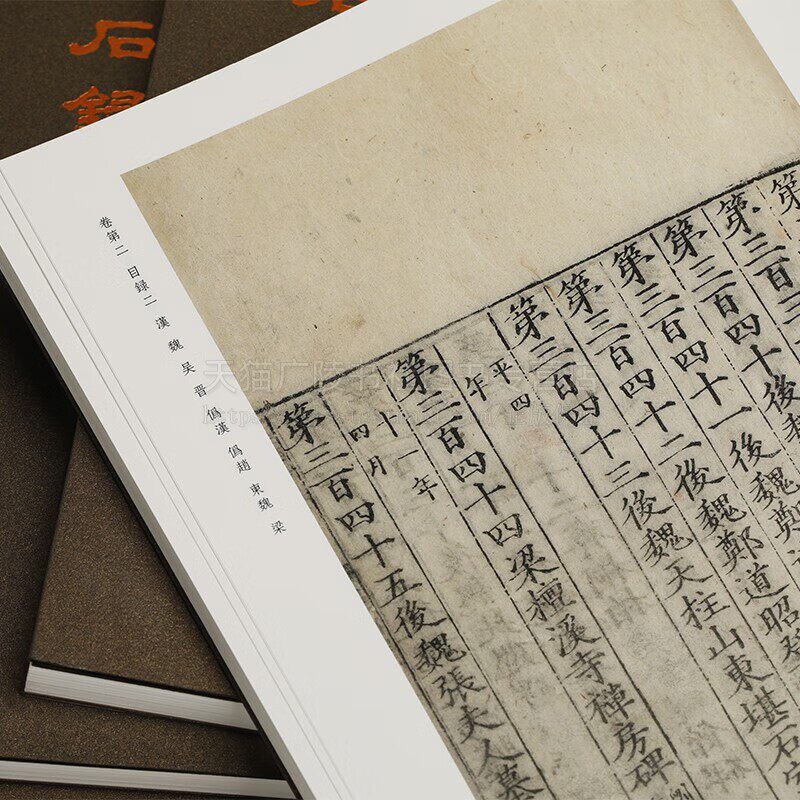 石
録
卷第二 目録二 漢 魏 吴 晋 僞漢 僞趙 東魏 梁
第三百四十後魏
第三百四十一後魏鄭
第三百四十二後魏鄭道昭
第三百四十三後魏天柱山東堪石
平四
年
第三百四十四梁檀溪寺禪房碑
十一年
四月
第三百四十五後魏張夫人墓